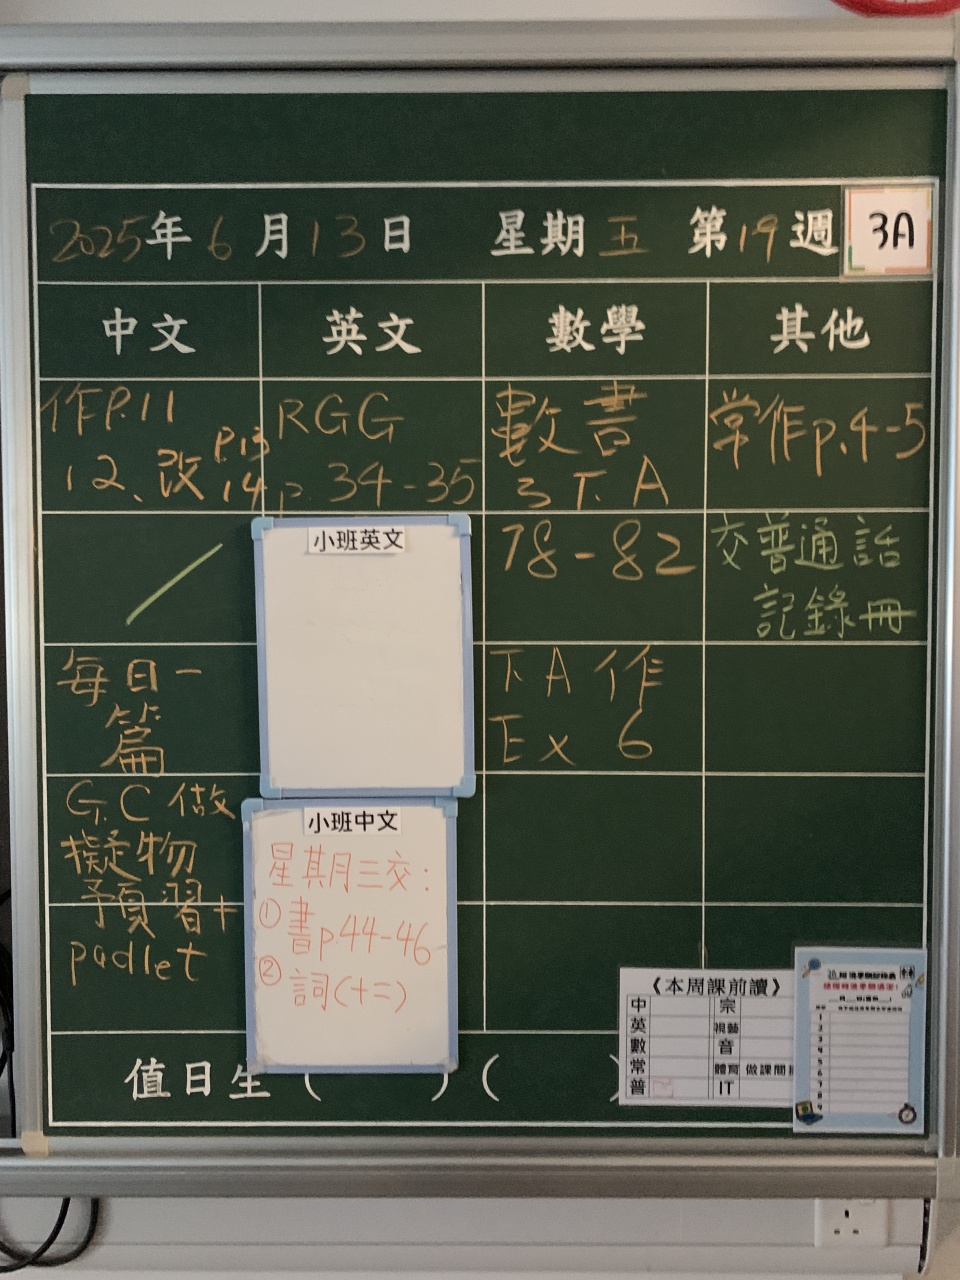 2025年6月13日 星期五 第19週 3A
中文 英文 數學 其他
作P.11
12、改 P.13
14
RGG
p.34-35
數書
3下A
78-82
下A作
Ex 6
常作p.4-5
交普通話
記錄冊
每日一
篇
G.C做
擬物
預習+
padlet
小班英文
小班中文
星期三交：
①書p.44-46
②詞(十二)
《本周課前讀》
中 宗
英 視藝
數 音
常 體育 做課間
普 IT
1
2
3
4
5
6
7
8
9
值日生 ( ) ( )